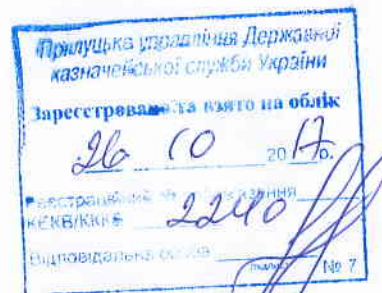 Прилуцька управління Державної
казначейської служби України
Зареєстровано та взято на облік
26 10 2017р.
Реєстраційний №
КЕКВ/ККК 2240
Відповідальна особа
підпис № 7